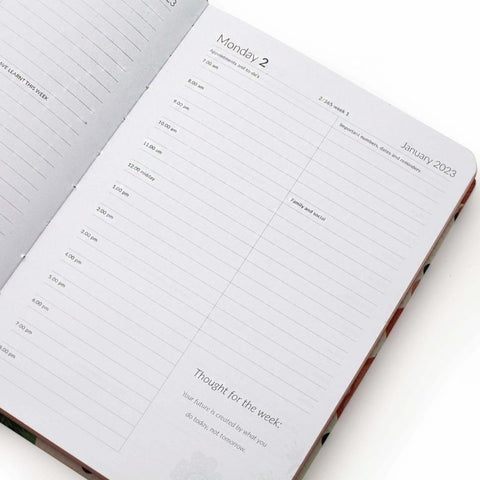 23
VE LEARNT THIS WEEK
Monday 2
Appointments and to-do's
7.00 am
8.00 am
9.00 am
10.00 am
11.00 am
12.00 midday
1.00 pm
2.00 pm
3.00 pm
4.00 pm
5.00 pm
6.00 pm
7.00 pm
8.00 pm
2/363 week 1
January 2023
Important numbers, dates and reminders
Family and social
Thought for the week:
Your future is created by what you
do today, not tomorrow.